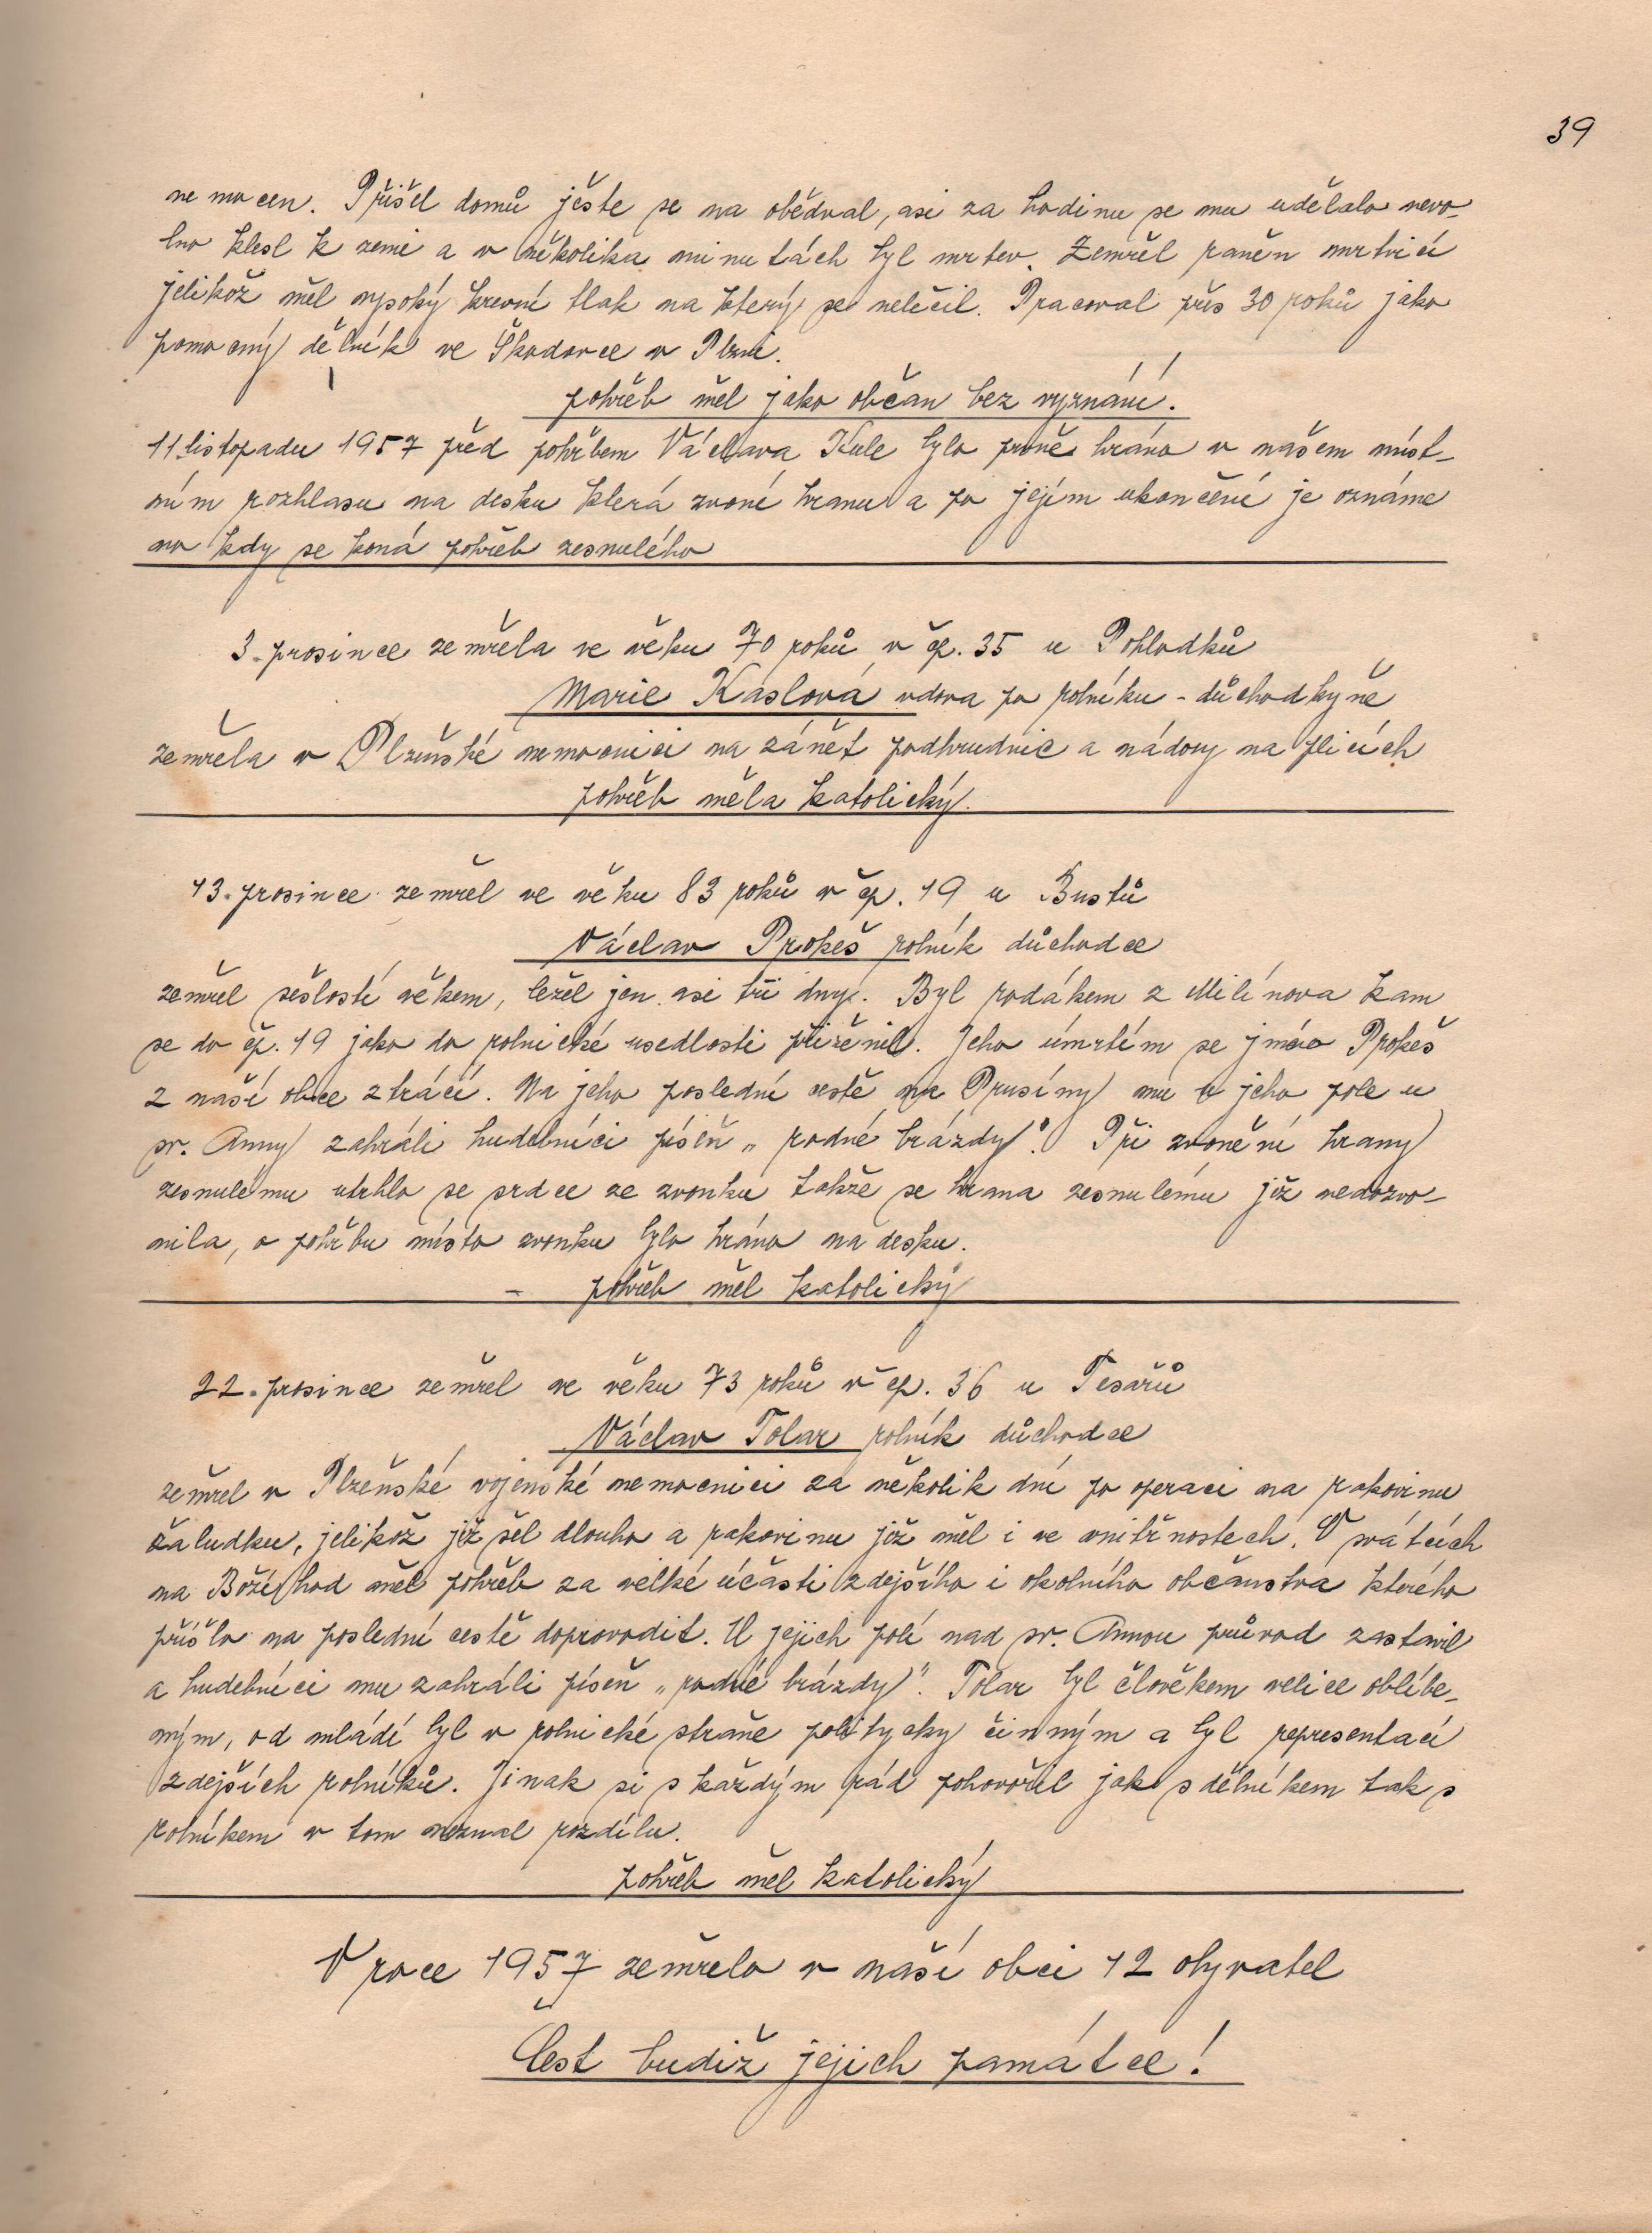 39
ne mocen. Přišel domů ješte se na obědval, asi za hodinu se mu udělalo nevo-
lno klesl k zemi a v několika minutách byl mrtev. Zemřel raněn mrtvicí
jelikož měl vysoký krevní tlak na který se neléčil. Pracoval přes 30 roků jako
pomocný dělník ve Škodovce v Plzni.
pohřeb měl jako občan bez vyznání.
11 listopadu 1957 před pohřbem Václava Kule bylo prvně hráno v našem míst-
ním rozhlasu na desku která zvoní hranu a po jejím ukončení je oznáme
no kdy se koná pohřeb zesnulého
3. prosince zemřela ve věku 70 roků v čp. 35 u Pohlodků
Marie Káslová vdova po rolníku - důchodkyně
zemřela v Plzeňské nemocnici na zánět podhrudnic a nádory na plicích
pohřeb měla katolický.
13. prosince zemřel ve věku 83 roků v čp. 19 u Bustů
Václav Prokeš rolník důchodce
zemřel sešlostí věkem, ležel jen asi tři dny. Byl rodákem z Milínova kam
se do čp. 19 jako do rolnické usedlosti přiženil. Jeho úmrtím se jméno Prokeš
z naší obce ztrácí. Na jeho poslední cestě na Prusiny mu u jeho pole u
sv. Anny zahráli hudebníci píseň „rodné brázdy". Při zvonění hrany
zesnulému utrhlo se srdce ze zvonku takže se hrana zesnulému již nedozvo-
nila, o pohřbu místo zvonku bylo hráno na desku.
- pohřeb měl katolický
22. prosince zemřel ve věku 73 roků v čp. 36 u Tesařů
Václav Tolar rolník důchodce
zemřel v Plzeňské vojenské nemocnici za několik dní po operaci na rakovinu
žaludku, jelikož již šel dlouho a rakovinu již měl i ve vnitřnostech. V svátcích
na Boží hod měl pohřeb za velké účasti zdejšího i okolního občanstva kterého
přišlo na poslední cestě doprovodit. U jejich polí nad sv. Annou průvod zastavil
a hudebníci mu zahráli píseň „rodné brázdy". Tolar byl člověkem velice oblíbe-
ným, od mládí byl v rolnické straně politycky činným a byl representací
zdejších rolníků. Jinak si s každým rád pohovořil jak s dělníkem tak s
rolníkem v tom neznal rozdílu.
pohřeb měl katolický
V roce 1957 zemřelo v naší obci 12 obyvatel
Čest budiž jejich památce!